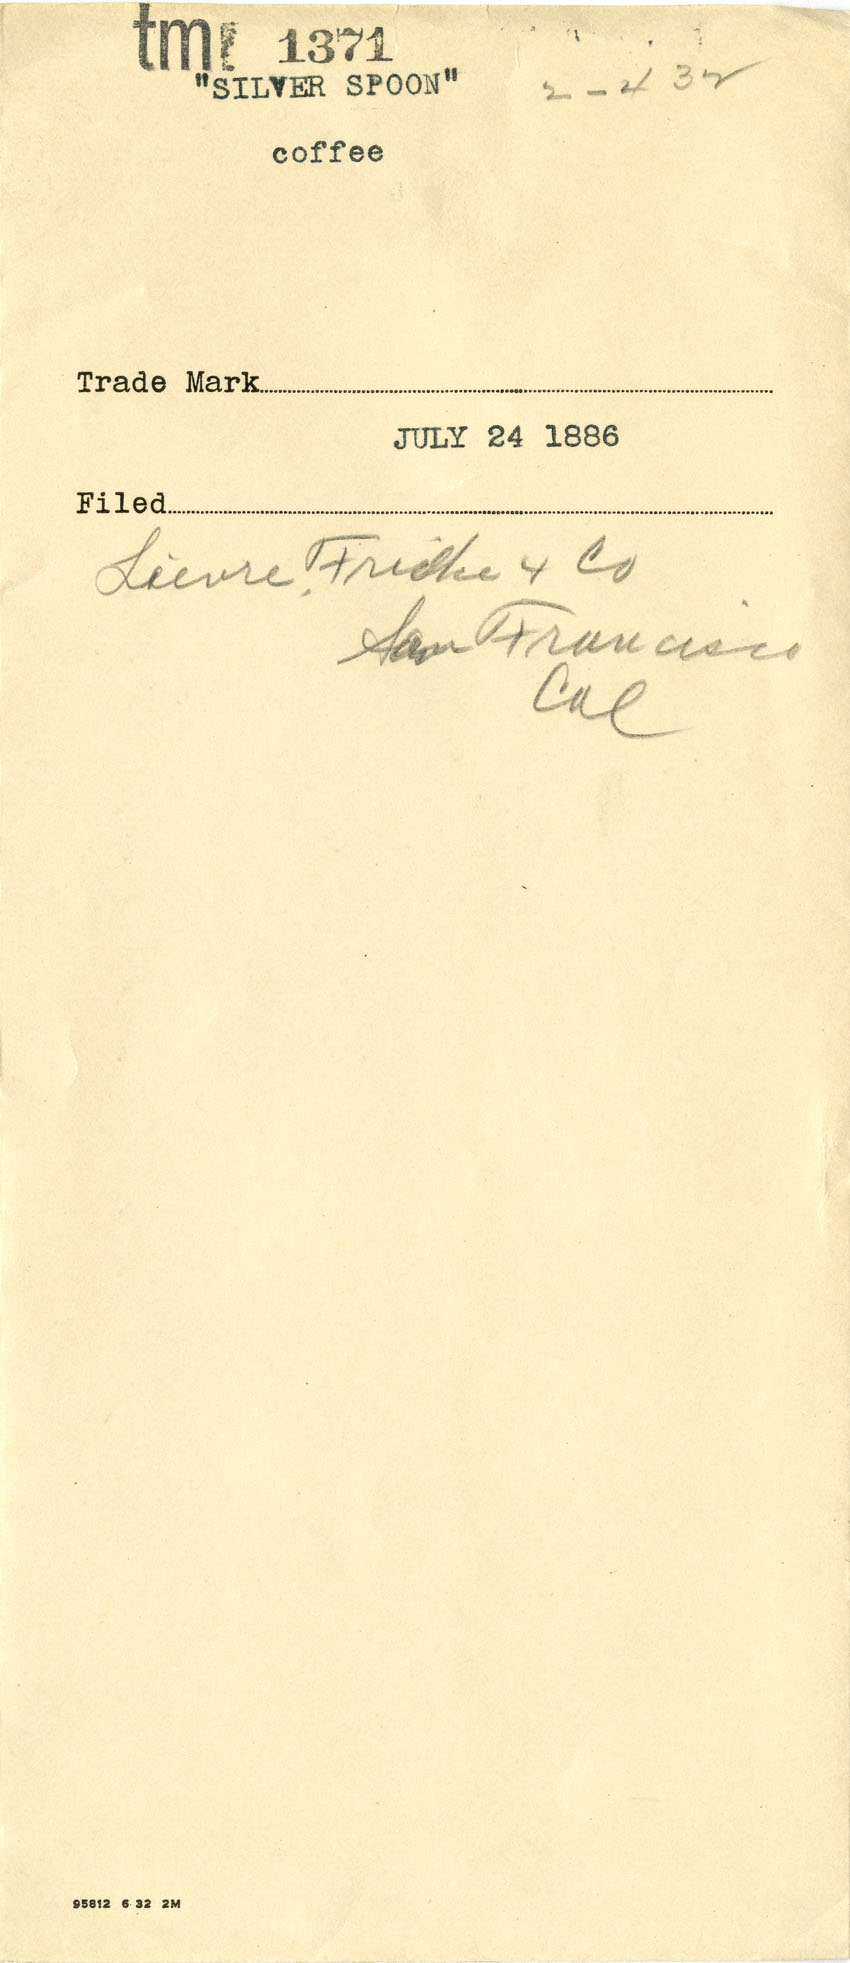 tm 1371
"SILVER SPOON"
2-432
coffee
Trade Mark
JULY 24 1886
Filed
Lievre, Fricke & Co
San Francisco
Cal
95812 6 32 2M